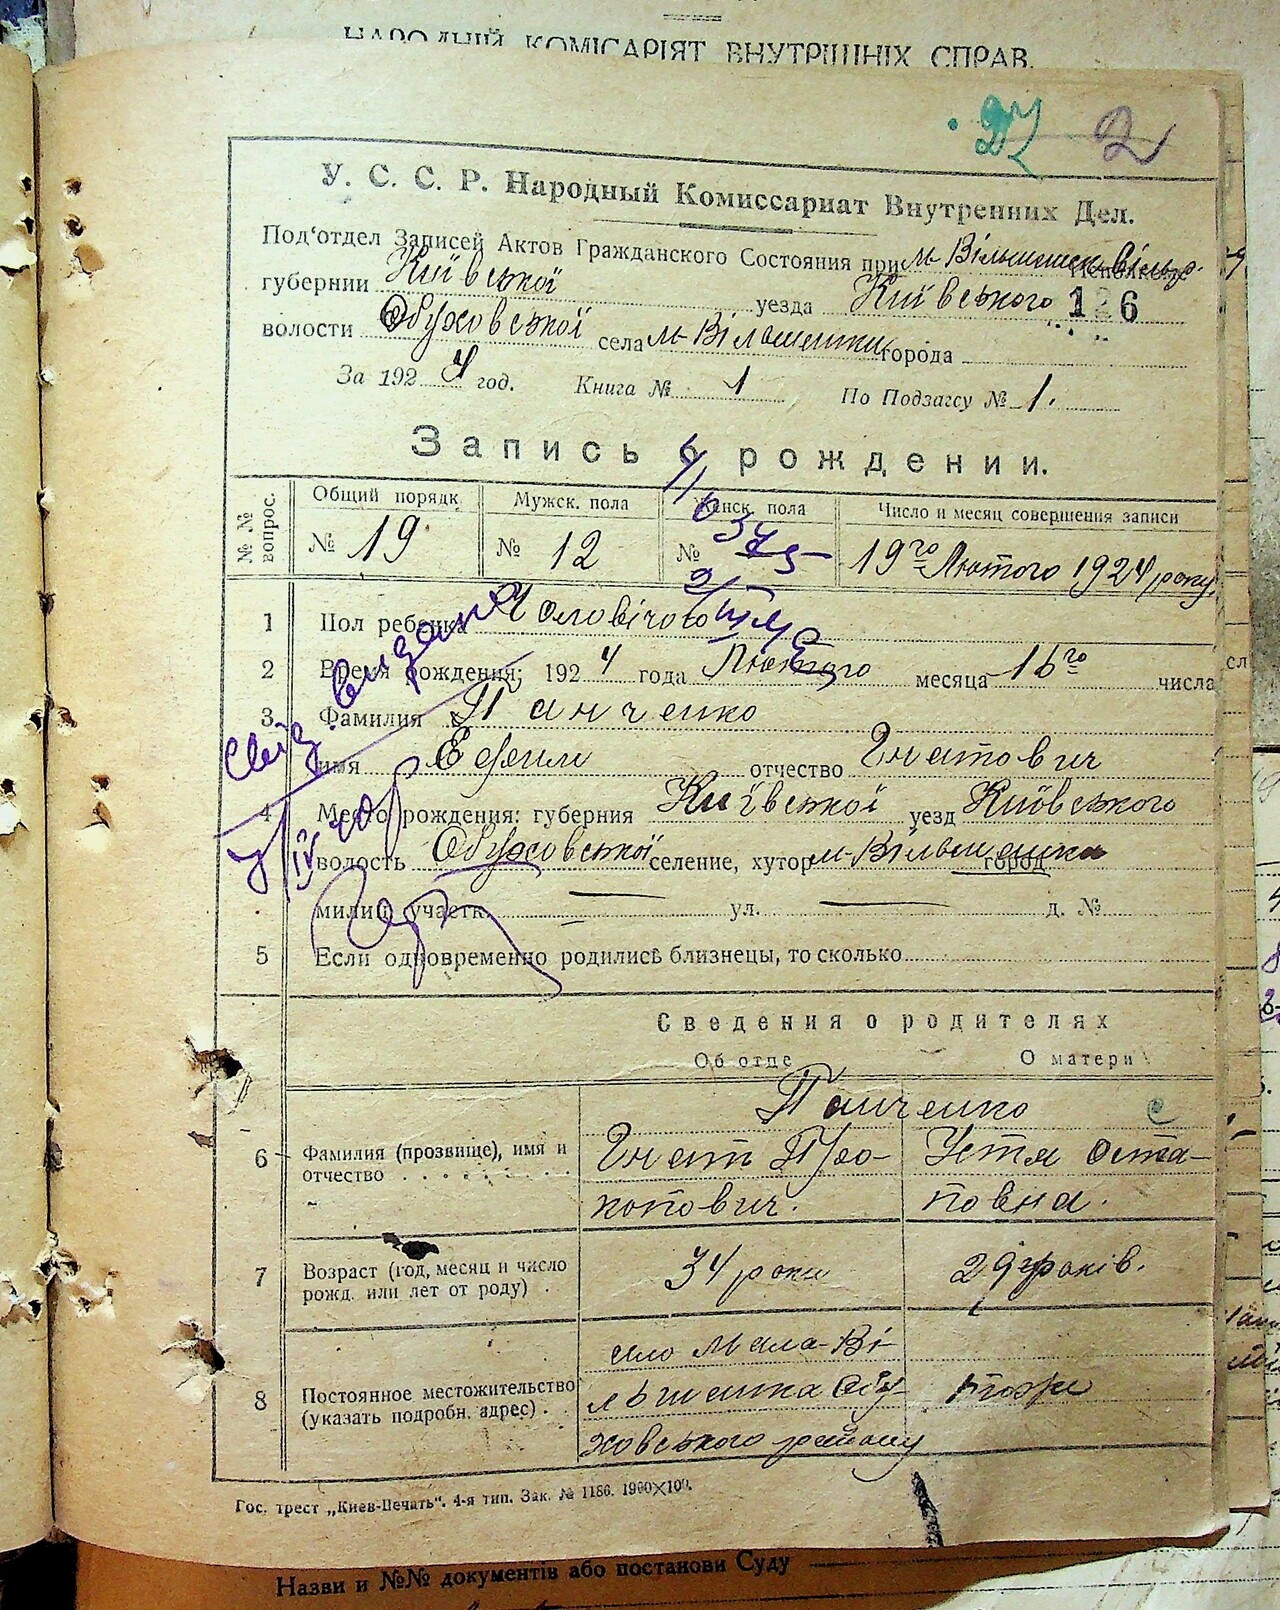 НАРОДНІЙ КОМІСАРІЯТ ВНУТРІШНІХ СПРАВ.
27 2
У. С. С. Р. Народный Комиссариат Внутренних Дел.
Под'отдел Записей Актов Гражданского Состояния при м-Вільшанск.
губернии Київської уезда Київського 126
волости Обуховської села м-Вільшанки города
За 1924 год. Книга № 1 По Подзагсу № 1.
Запись о рождении.
№ № вопрос. Общий порядк. Мужск. пола Женск. пола Число и месяц совершения записи
№ 19 № 12 № 19го Лютого 1924 року
1 Пол ребенка Чоловічого
2 Время рождения: 1924 года Лютого месяца 16го числа
3 Фамилия Панченко
имя Ефим отчество Гнатович
4 Место рождения: губерния Київської уезд Київського
волость Обуховської селение, хутор м-Вільшанка город
милиц. участк. — ул. — д. №
5 Если одновременно родились близнецы, то сколько
Свід. видано
Сведения о родителях
Об отце О матери
Панченко
6 Фамилия (прозвище), имя и отчество Гнат Про- Устя Оста-
копович. повна.
7 Возраст (год, месяц и число рожд. или лет от роду) 34 роки 29 років.
8 Постоянное местожительство (указать подробн. адрес) село Мала-Ві-
льшанка Обу- тоже
ховського району
Гос. трест „Киев-Печать". 4-я тип. Зак. № 1186. 1900×100.
Назви и №№ документів або постанови Суду